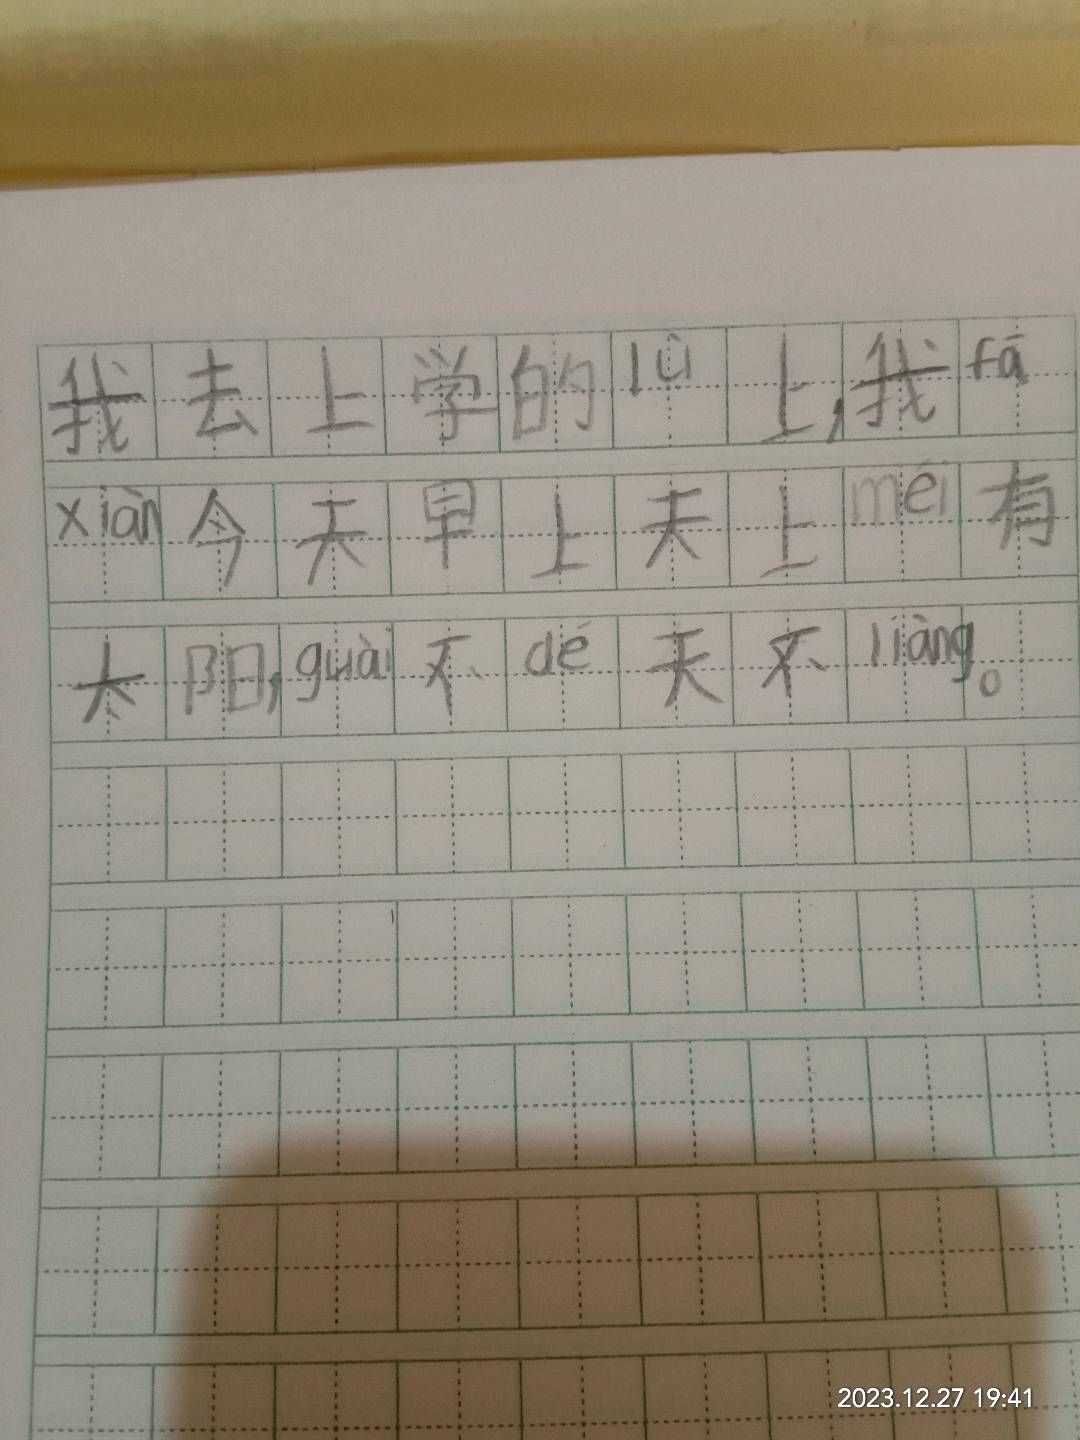 我去上学的lù上,我fā
xiàn今天早上天上méi有
太阳,guài不dé天不liàng。
2023.12.27 19:41